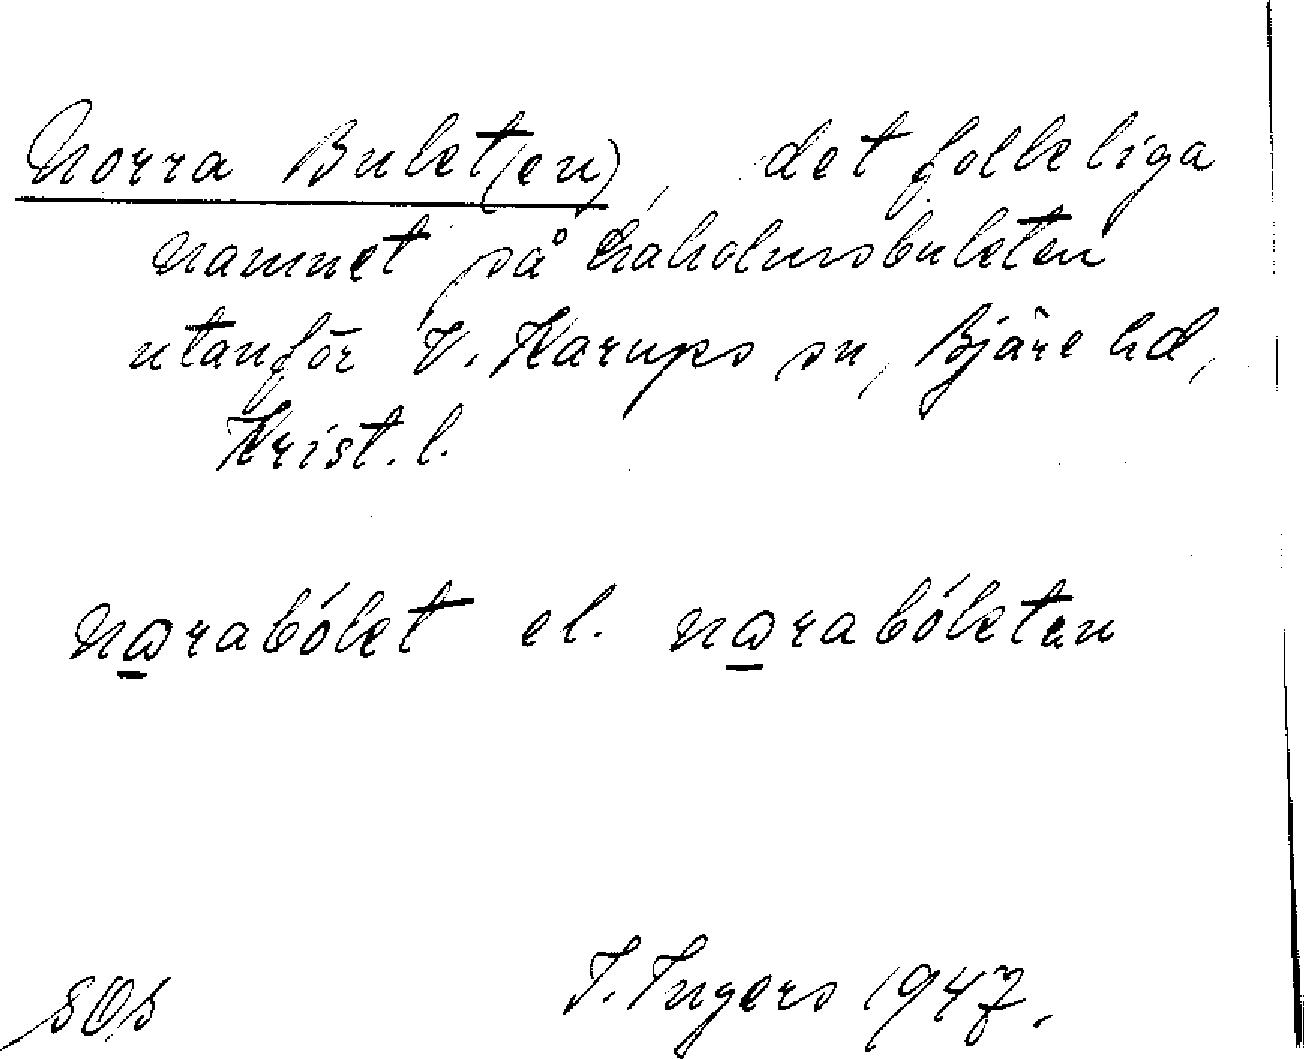 Norra Bukt(en), det folkliga
namnet på Laholmsbukten
utanför V. Karups sn, Bjäre hd,
Krist. l.
nɷrabókt el. nɷrabóktən
I. Ingers 1947.